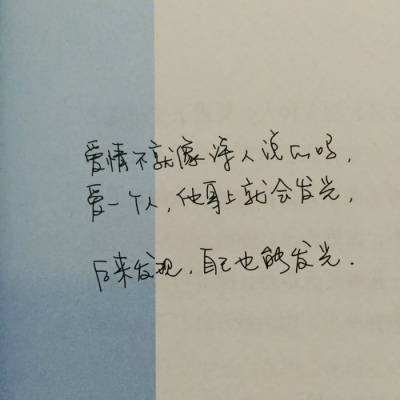 爱情不就像诗人说的吗，
爱一个人，他身上就会发光，
后来发现，自己也能发光.